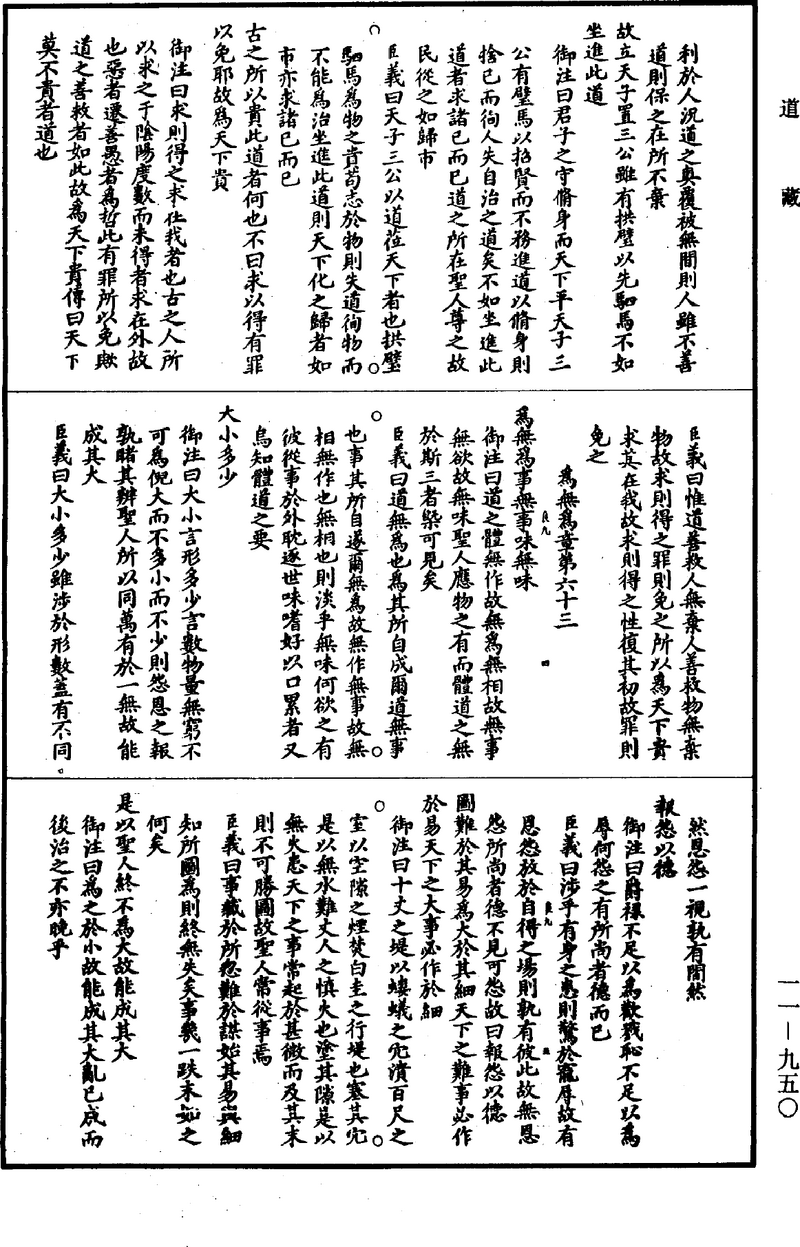 道藏
利於人況道之奧覆被無間則人雖不善
道則保之在所不棄
故立天子置三公雖有拱璧以先駟馬不如
坐進此道
御注曰君子之守脩身而天下平天子三
公有璧馬以招賢而不務進道以脩身則
捨己而徇人失自治之道矣不如坐進此
道者求諸己而已道之所在聖人尊之故
民從之如歸市
臣義曰天子三公以道蒞天下者也拱璧
駟馬為物之貴苟志於物則失道徇物而
不能為治坐進此道則天下化之歸者如
市亦求諸己而已
古之所以貴此道者何也不曰求以得有罪
以免耶故為天下貴
御注曰求則得之求在我者也古之人所
以求之于陰陽度數而未得者求在外故
也惡者遷善愚者為哲此有罪所以免歟
道之善救者如此故為天下貴傳曰天下
莫不貴者道也
臣義曰惟道善救人無棄人善救物無棄
物故求則得之罪則免之所以為天下貴
求其在我故求則得之性復其初故罪則
免之
為無為章第六十三
為無為事無事味無味
御注曰道之體無作故無為無相故無事
無欲故無味聖人應物之有而體道之無
於斯三者槩可見矣
臣義曰道無為也為其所自成爾道無事
也事其所自遂爾無為故無作無事故無
相無作也無相也則淡乎無味何欲之有
彼從事於外耽逐世味嗜好以口累者又
烏知體道之要
大小多少
御注曰大小言形多少言數物量無窮不
可為倪大而不多小而不少則怨恩之報
孰睹其辨聖人所以同萬有於一無故能
成其大
臣義曰大小多少雖涉於形數蓋有不同
然恩怨一視孰有閡然
報怨以德
御注曰爵祿不足以為勸戮恥不足以為
辱何怨之有所尚者德而已
臣義曰涉乎有身之患則驚於寵辱故有
恩怨放於自得之場則孰有彼此故無恩
怨所尚者德不見可怨故曰報怨以德
圖難於其易為大於其細天下之難事必作
於易天下之大事必作於細
御注曰十丈之堤以螻蟻之穴潰百尺之
室以突隙之煙焚白圭之行堤也塞其穴
是以無水難丈人之慎火也塗其隙是以
無火患天下之事常起於甚微而及其末
則不可勝圖故聖人常從事焉
臣義曰事藏於所忽難於謀始其易與細
知所圖為則終無失矣事幾一跌末如之
何矣
是以聖人終不為大故能成其大
御注曰為之於小故能成其大亂已成而
後治之不亦晚乎
一一—九五〇